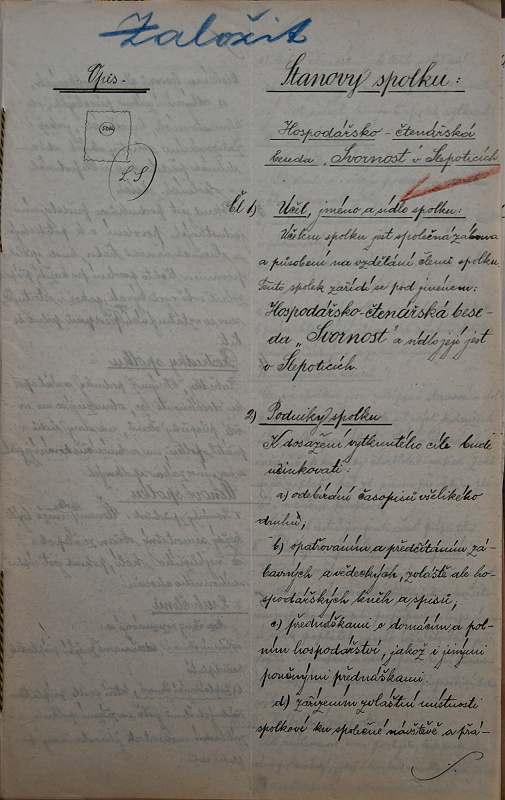 Založit
Opis.
50h
L.S.
Stanovy spolku:
Hospodářsko-čtenářská
beseda „Svornost" v Slepoticích
Čl. 1) Účel, jméno a sídlo spolku:
Účelem spolku jest společná zábava
a působení na vzdělání členů spolku.
Tento spolek zařídí se pod jménem:
Hospodářsko-čtenářská bese-
da „Svornost" a sídlo její jest
v Slepoticích.
2) Podniky spolku
K dosažení vytknutého cíle bude
účinkovati:
a) odebírání časopisů všelikého
druhu;
b) opatřováním a předčítáním zá-
bavných a vědeckých, zvláště ale ho-
spodářských kněh a spisů;
c) přednáškami o domácím a pol-
ním hospodářství, jakož i jinými
poučnými přednáškami.
d) zařízením zvláštní místnosti
spolkové ku společné návštěvě a přá-